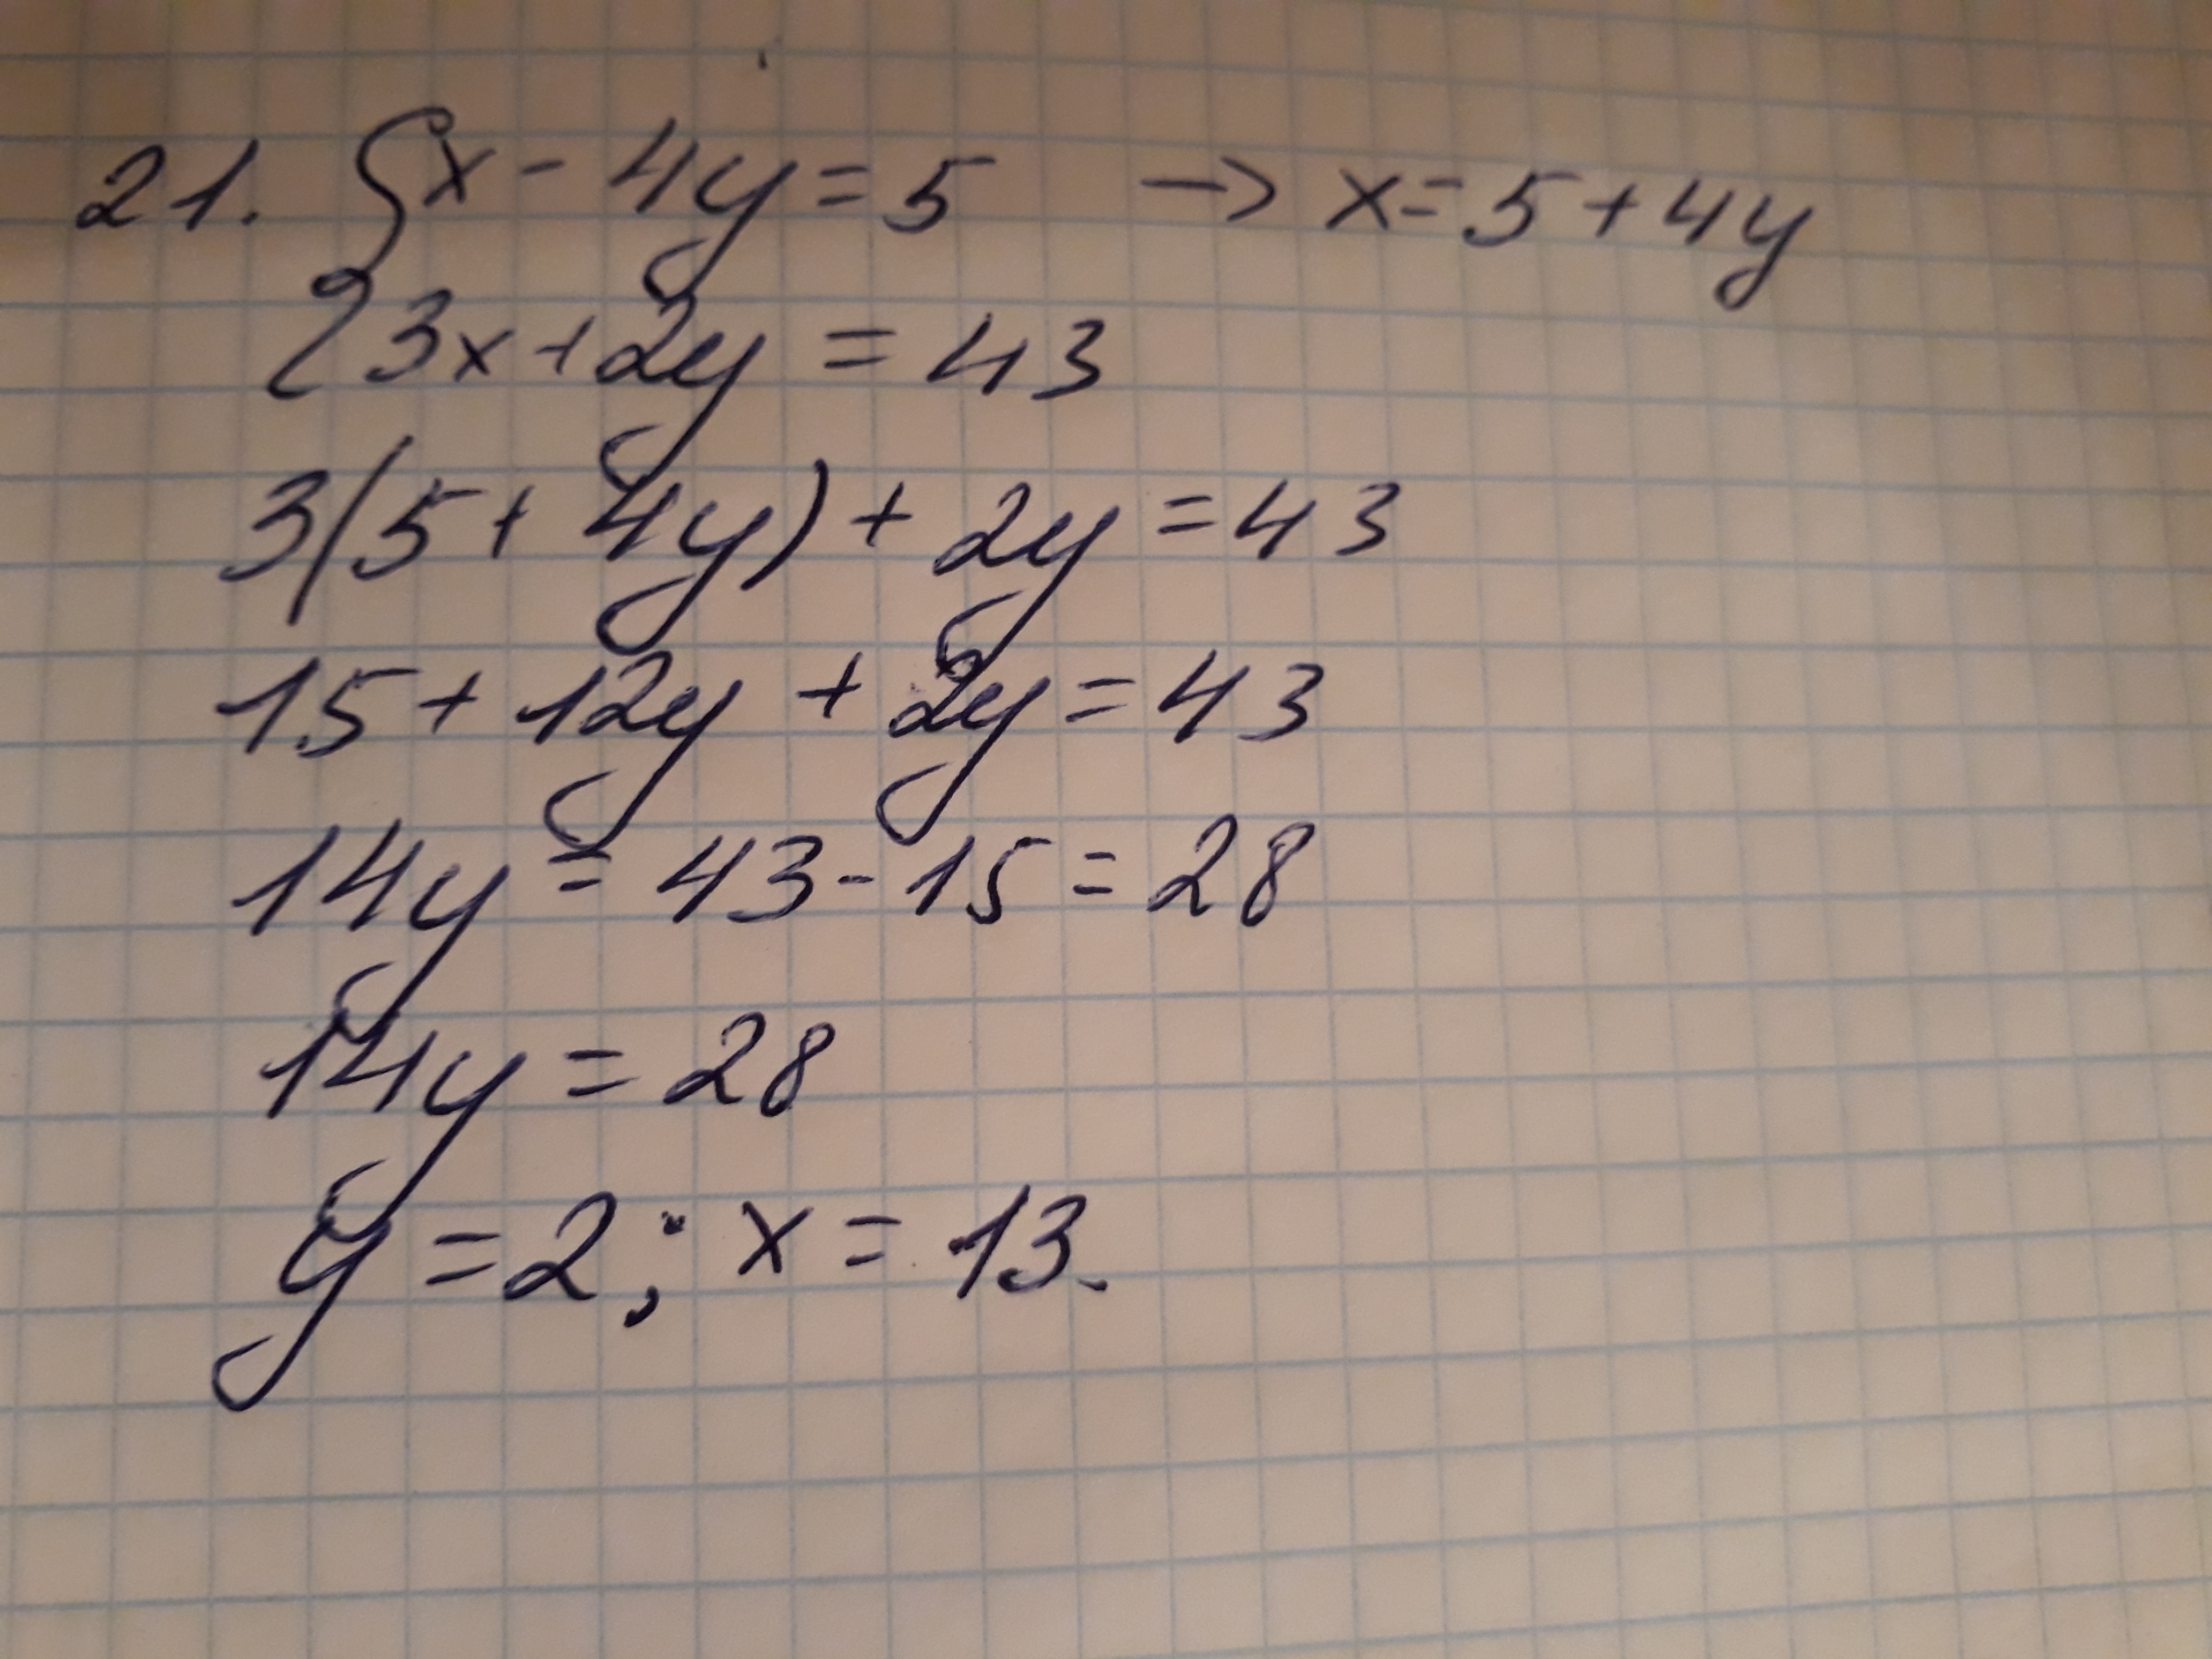 21. { x - 4y = 5 → x = 5 + 4y
3x + 2y = 43
3(5 + 4y) + 2y = 43
15 + 12y + 2y = 43
14y = 43 - 15 = 28
14y = 28
y = 2; x = 13.